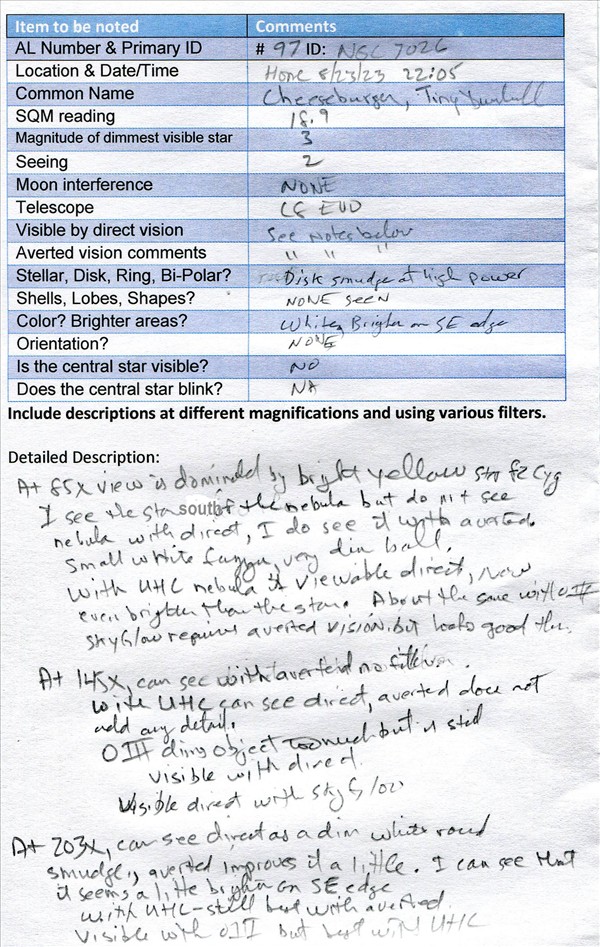 Item to be noted Comments
AL Number & Primary ID # 97 ID: NGC 7026
Location & Date/Time Home 8/23/23 22:05
Common Name Cheeseburger, Tiny Dumbell
SQM reading 18.9
Magnitude of dimmest visible star 3
Seeing 2
Moon interference NONE
Telescope C8 EVO
Visible by direct vision See notes below
Averted vision comments " " "
Stellar, Disk, Ring, Bi-Polar? Disk smudge at high power
Shells, Lobes, Shapes? NONE seen
Color? Brighter areas? White, Brighter on SE edge
Orientation? NONE
Is the central star visible? NO
Does the central star blink? NA
Include descriptions at different magnifications and using various filters.
Detailed Description:
At 85x view is dominated by bright yellow star 72 Cyg
I see the star south of the nebula but do not see
nebula with direct, I do see it with averted.
Small white fuzzy, very dim ball.
With UHC nebula is viewable direct, now
even brighter than the star. About the same with OIII
SkyGlow requires averted vision but looks good tho.
At 145x, can see with averted no filter.
With UHC can see direct, averted does not
add any detail.
OIII dims object too much but is still
visible with direct.
Visible direct with SkyGlow
At 203x, can see direct as a dim white round
smudge, averted improves it a little. I can see that
it seems a little brighter on SE edge
with UHC - still best with averted.
Visible with OIII but best with UHC